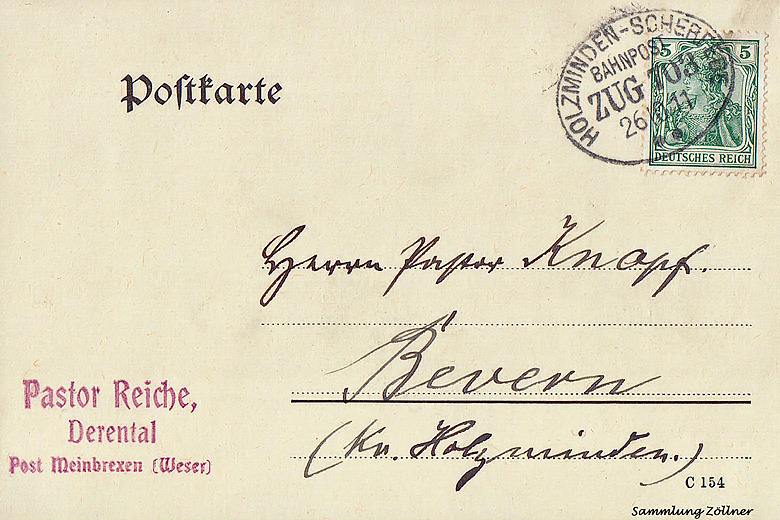 Postkarte
HOLZMINDEN-SCHERF
BAHNPOST
ZUG 703
5 5
DEUTSCHES REICH
Herrn Pastor Knopf.
Bevern
(Kr. Holzminden.)
Pastor Reiche,
Derental
Post Meinbrexen (Weser)
C 154
Sammlung Zöllner